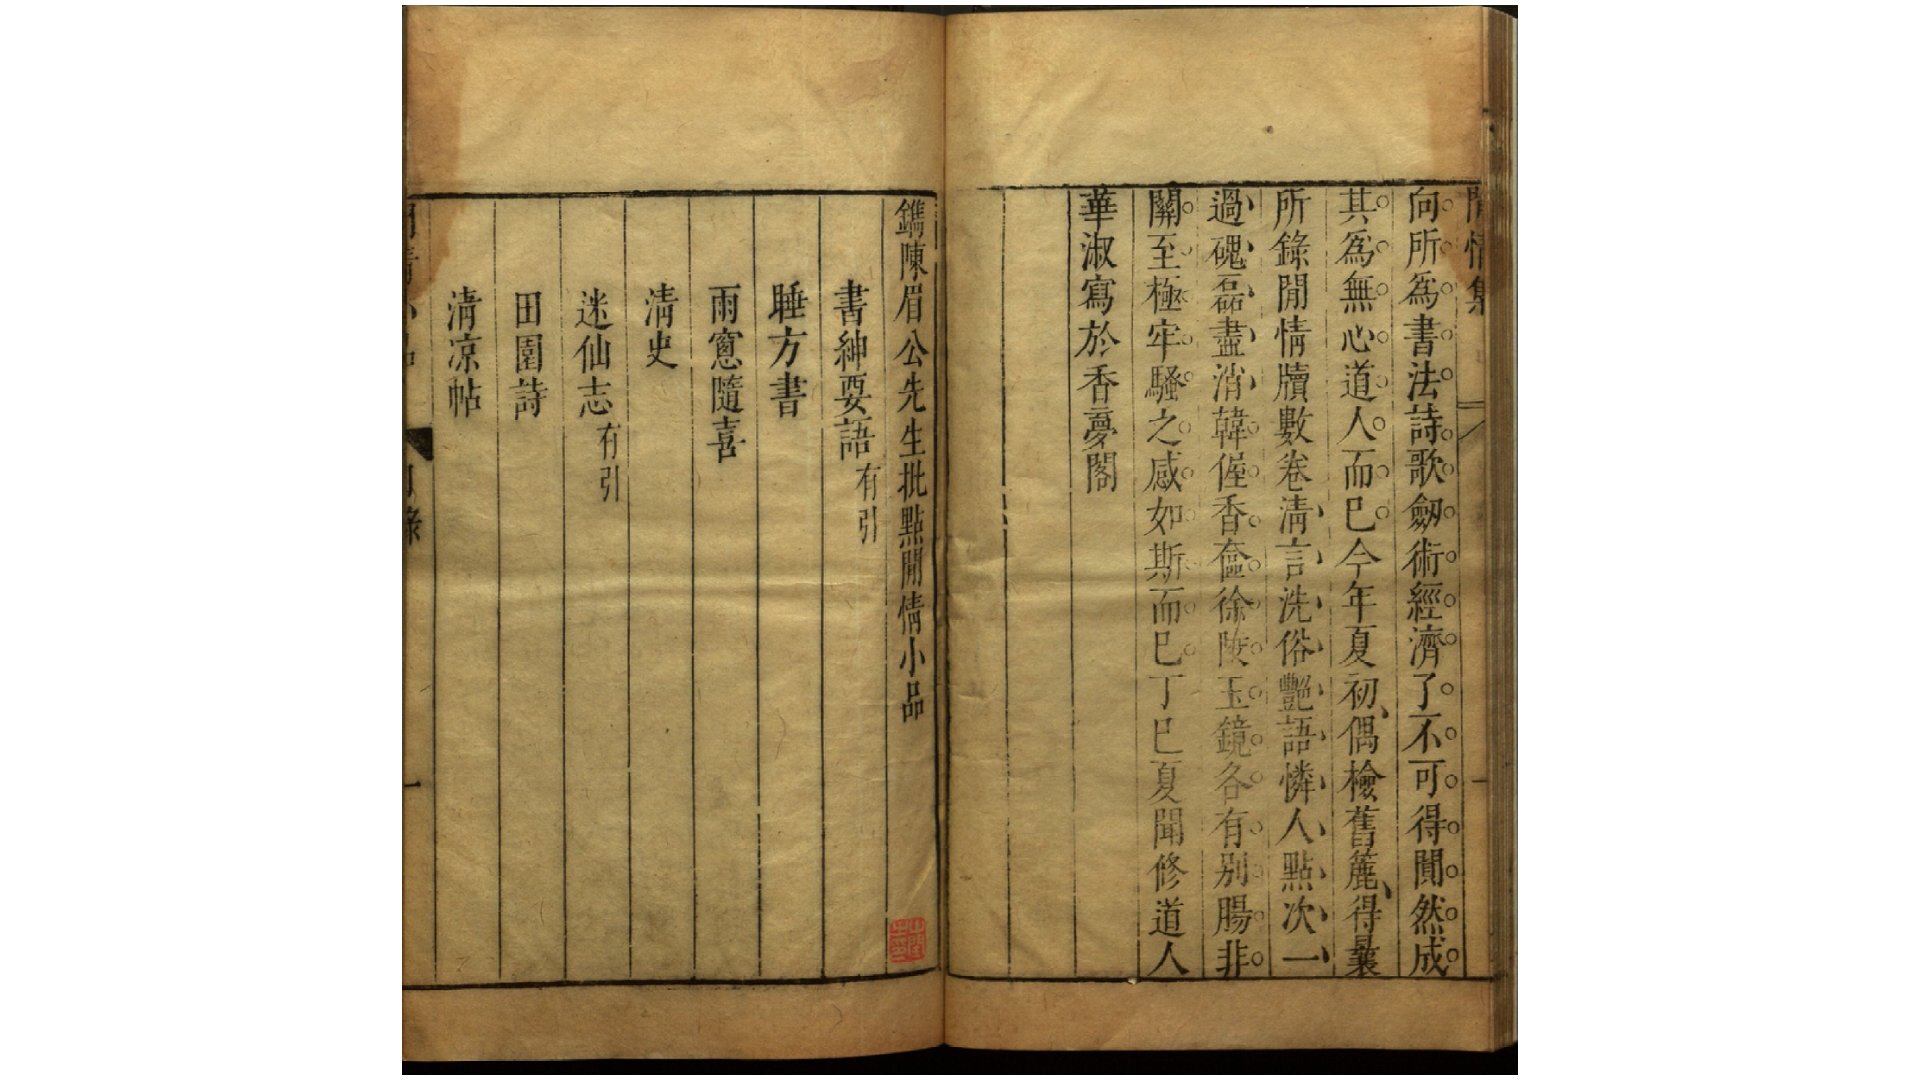 閒情集
向所爲書法詩歌劒術經濟了不可得闃然成
其爲無心道人而已今年夏初偶檢舊簏得曩
所錄閒情牘數卷清言洗俗艷語憐人點次一
過磈磊盡消韓偓香奩徐陵玉鏡各有別腸非
關至極牢騷之感如斯而已丁巳夏聞修道人
華淑寫於香夢閣
鐫陳眉公先生批點閒情小品
書紳要語有引
睡方書
雨窓隨喜
清史
迷仙志有引
田園詩
清凉帖